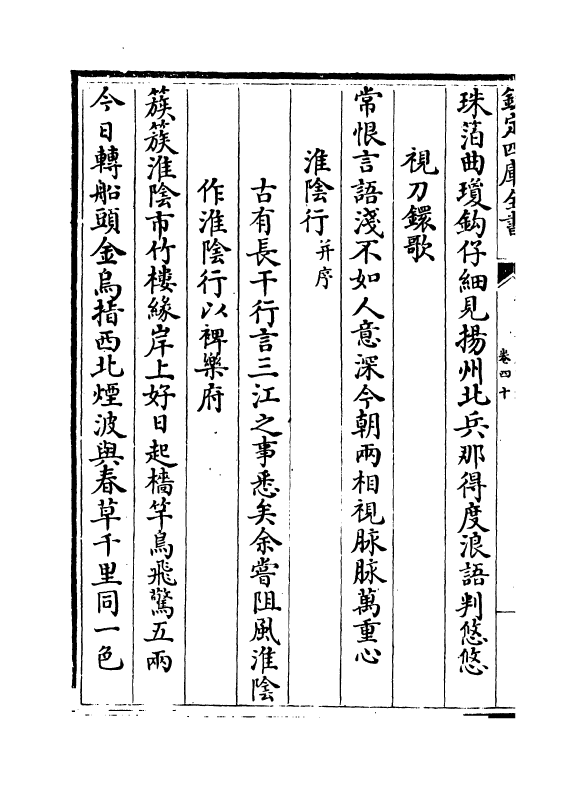 欽定四庫全書
卷四十
珠箔曲瓊鈎仔細見揚州北兵那得度浪語判悠悠
視刀鐶歌
常恨言語淺不如人意深今朝兩相視脉脉萬重心
淮陰行并序
古有長干行言三江之事悉矣余嘗阻風淮陰
作淮陰行以裨樂府
簇簇淮陰市竹樓緣岸上好日起檣竿烏飛驚五兩
今日轉船頭金烏指西北煙波與春草千里同一色